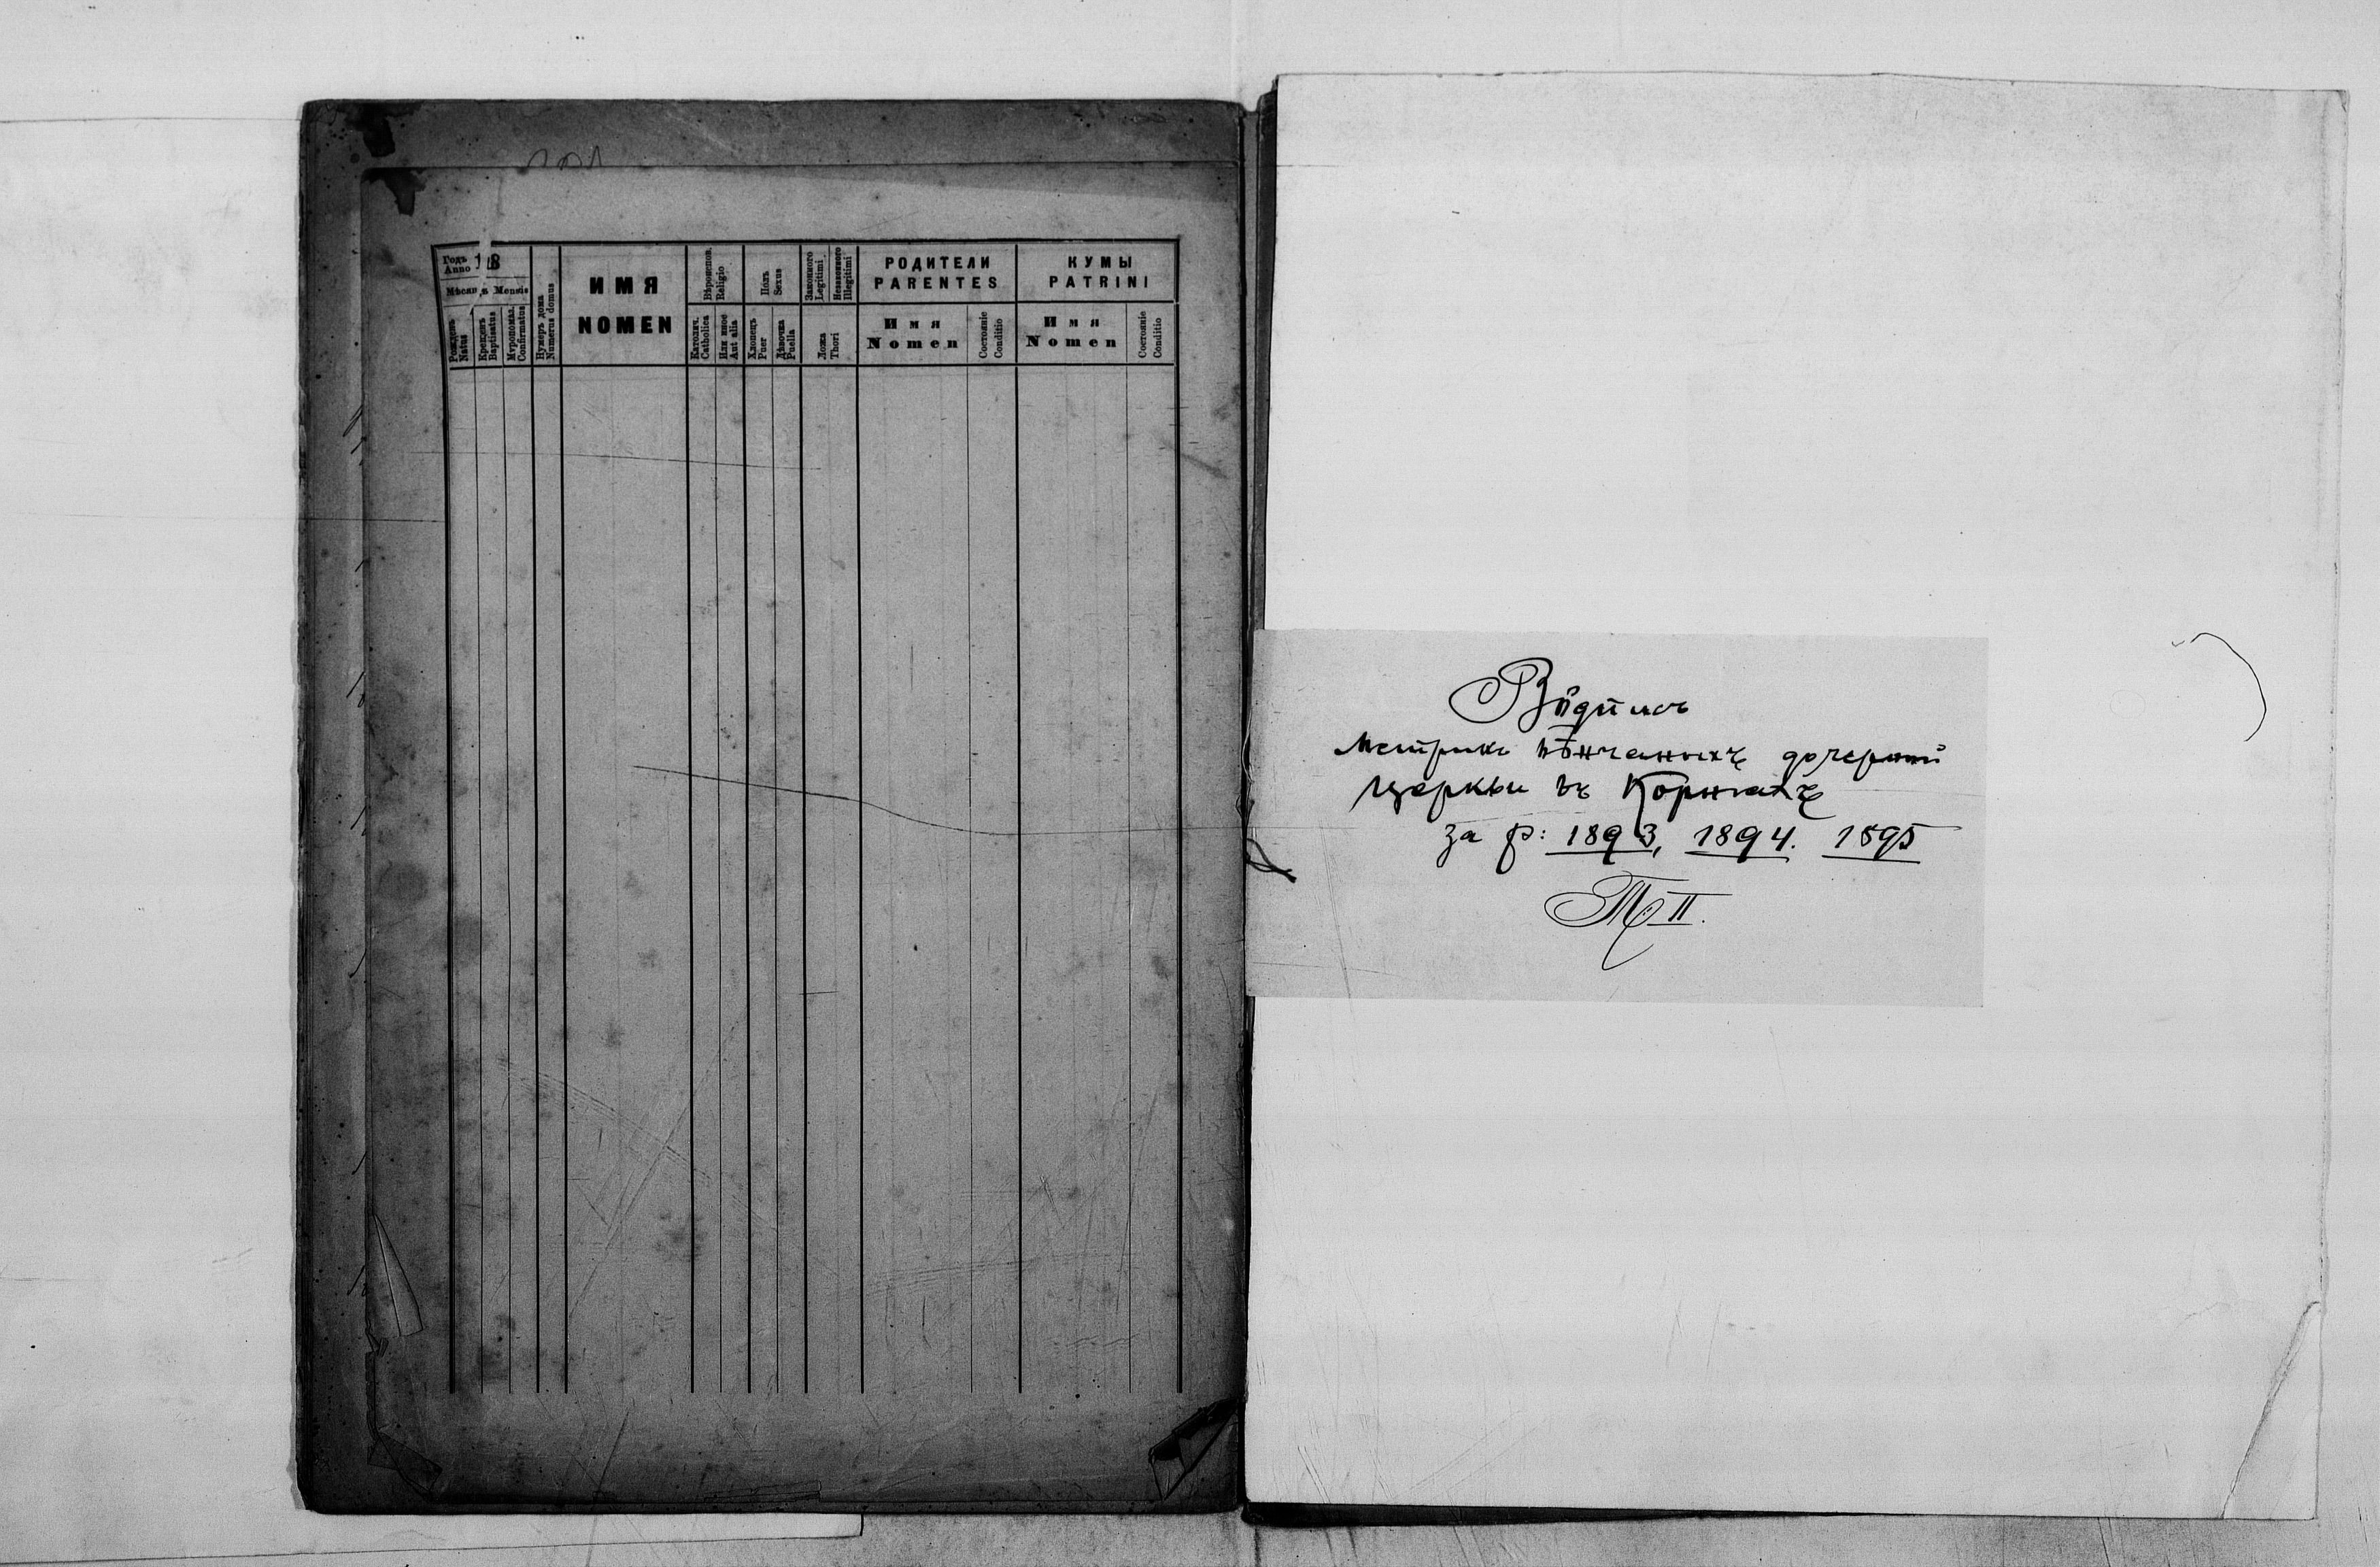 Годъ 18
Anno
Мѣсяць Mensis
Рожденъ
Natus
Крещенъ
Baptisatus
Муропомаз.
Confirmatus
Нумеръ дома
Numerus domus
ИМЯ
NOMEN
Вѣроиспов.
Religio
Католич.
Catholica
Или иное
Aut alia
Полъ
Sexus
Хлопецъ
Puer
Дѣвочка
Puella
Законного
Legitimi
Незаконного
Illegitimi
Ложа
Thori
РОДИТЕЛИ
PARENTES
Имя
Nomen
Состояніе
Conditio
КУМЫ
PATRINI
Имя
Nomen
Состояніе
Conditio
Вôдпись
Метрикъ вѣнчаныхъ дочерної
церкви въ Корничахъ
за р: 1893, 1894. 1895
Т II.